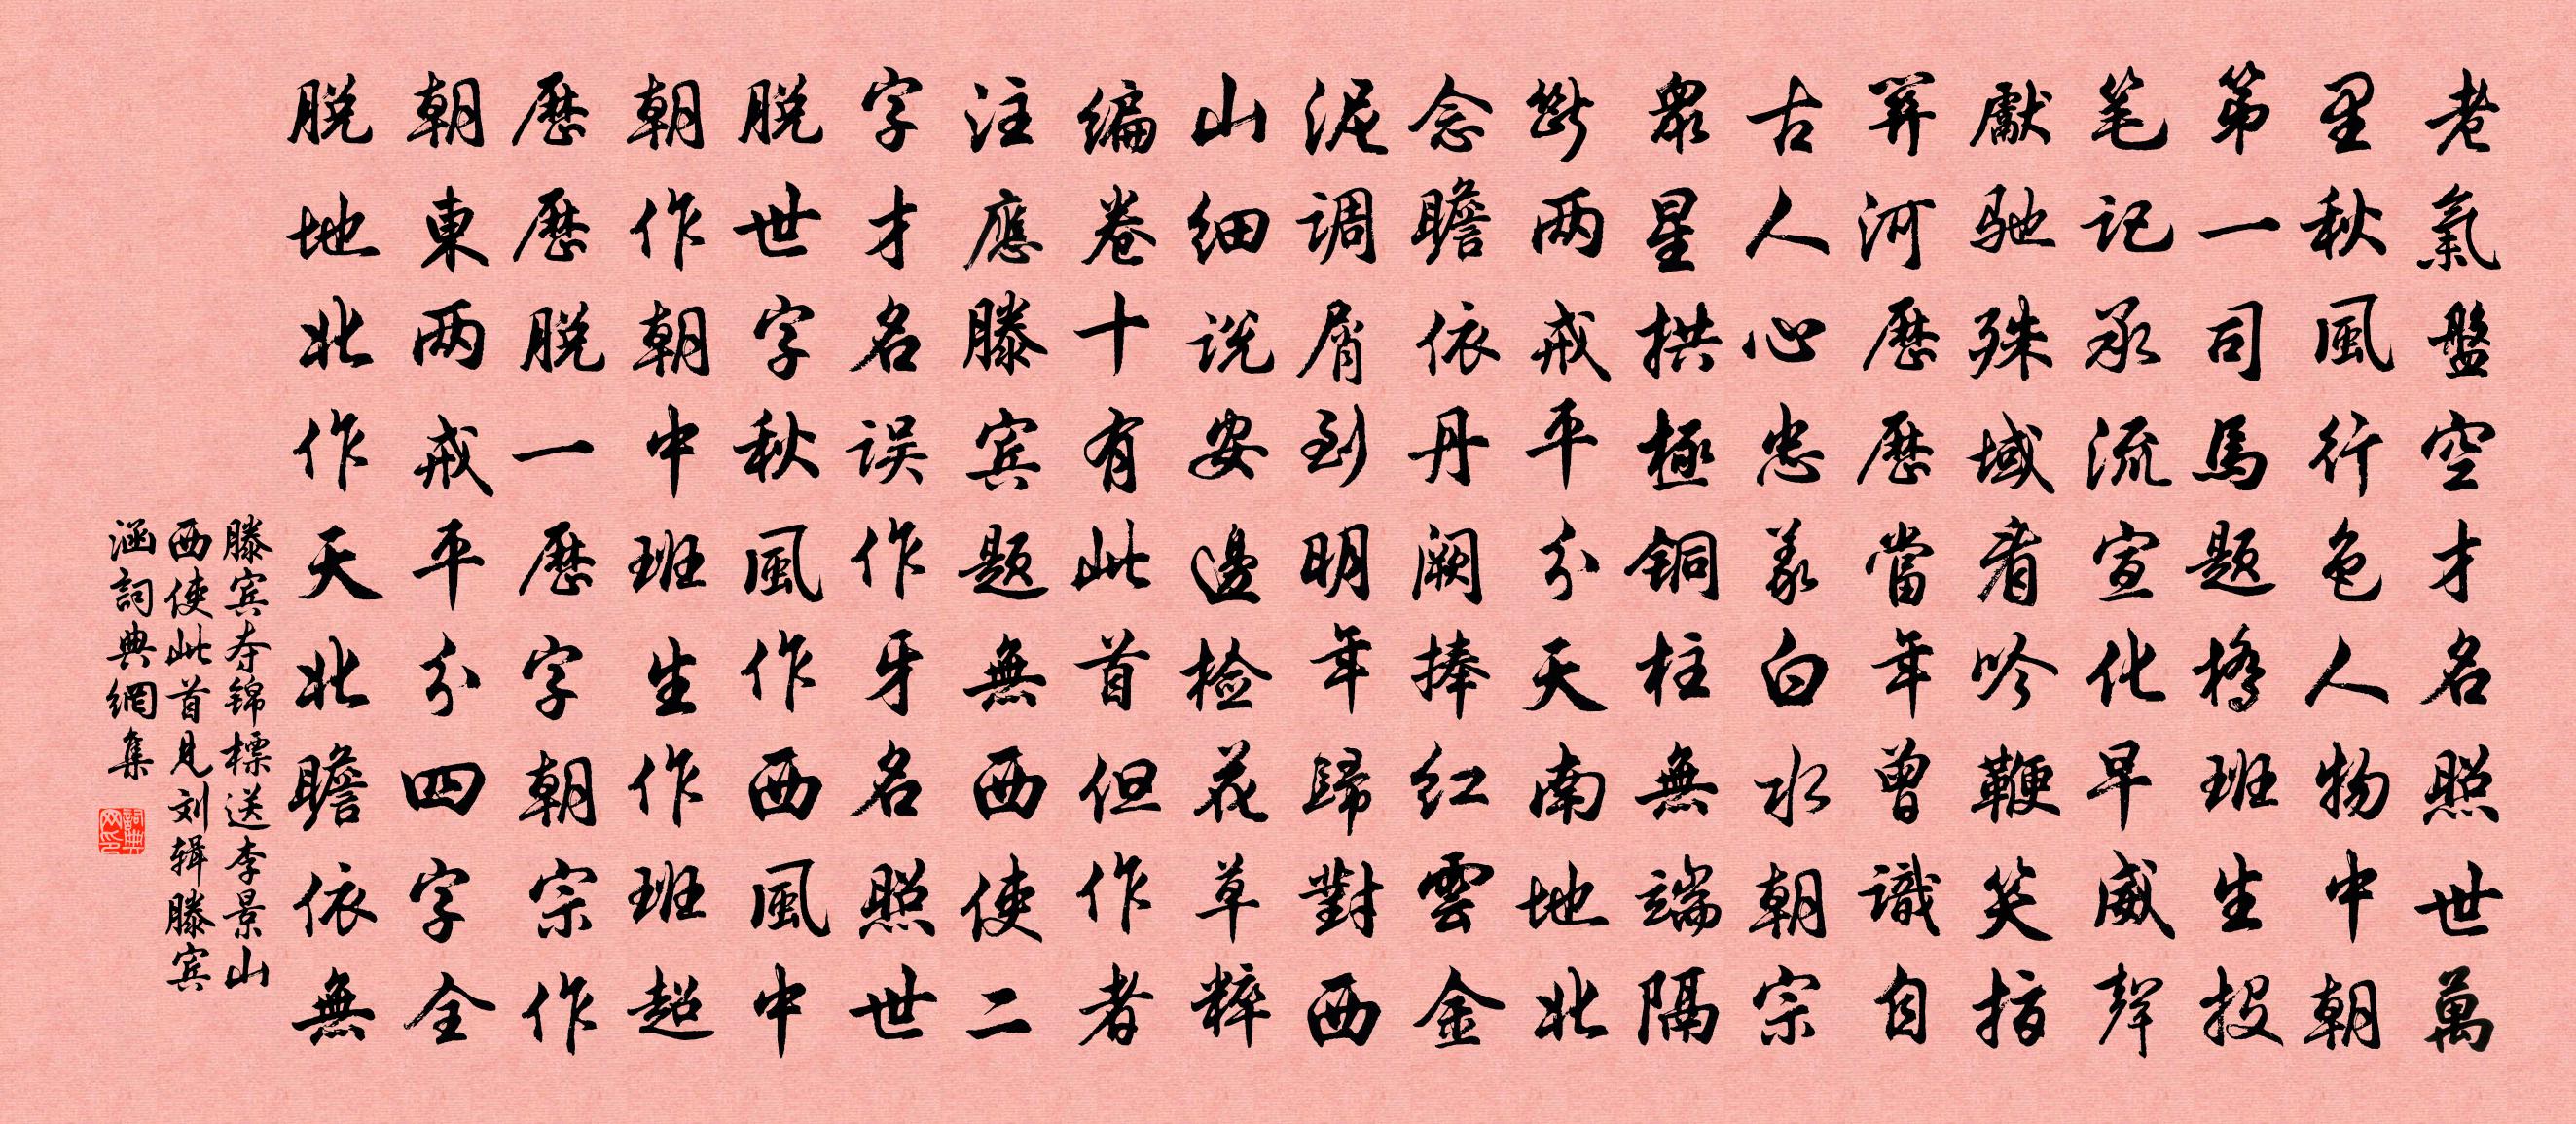 老氣盤空才名照世萬
里秋風行色人物中朝
第一司馬題橋班生投
笔記承流宣化早威聲
獻馳殊域看吟鞭笑指
罪河歷歷當年曾識自
古人心忠義白水朝宗
眾星拱極銅柱無端隔
斷两戒平分天南地北
念瞻依丹阙捧红雲金
泥调屑到明年歸對西
山细说安邊检花草粹
编卷十有此首但作者
注應滕宾题無西使二
字才名误作牙名照世
脱世字秋風作西風中
朝作朝中班生作班超
歷歷脱一歷字朝宗作
朝東两戒平分四字全
脱地北作天北瞻依無
滕宾夺锦標送李景山
西使此首見刘辑滕宾
涵詞典網集
詞典网印